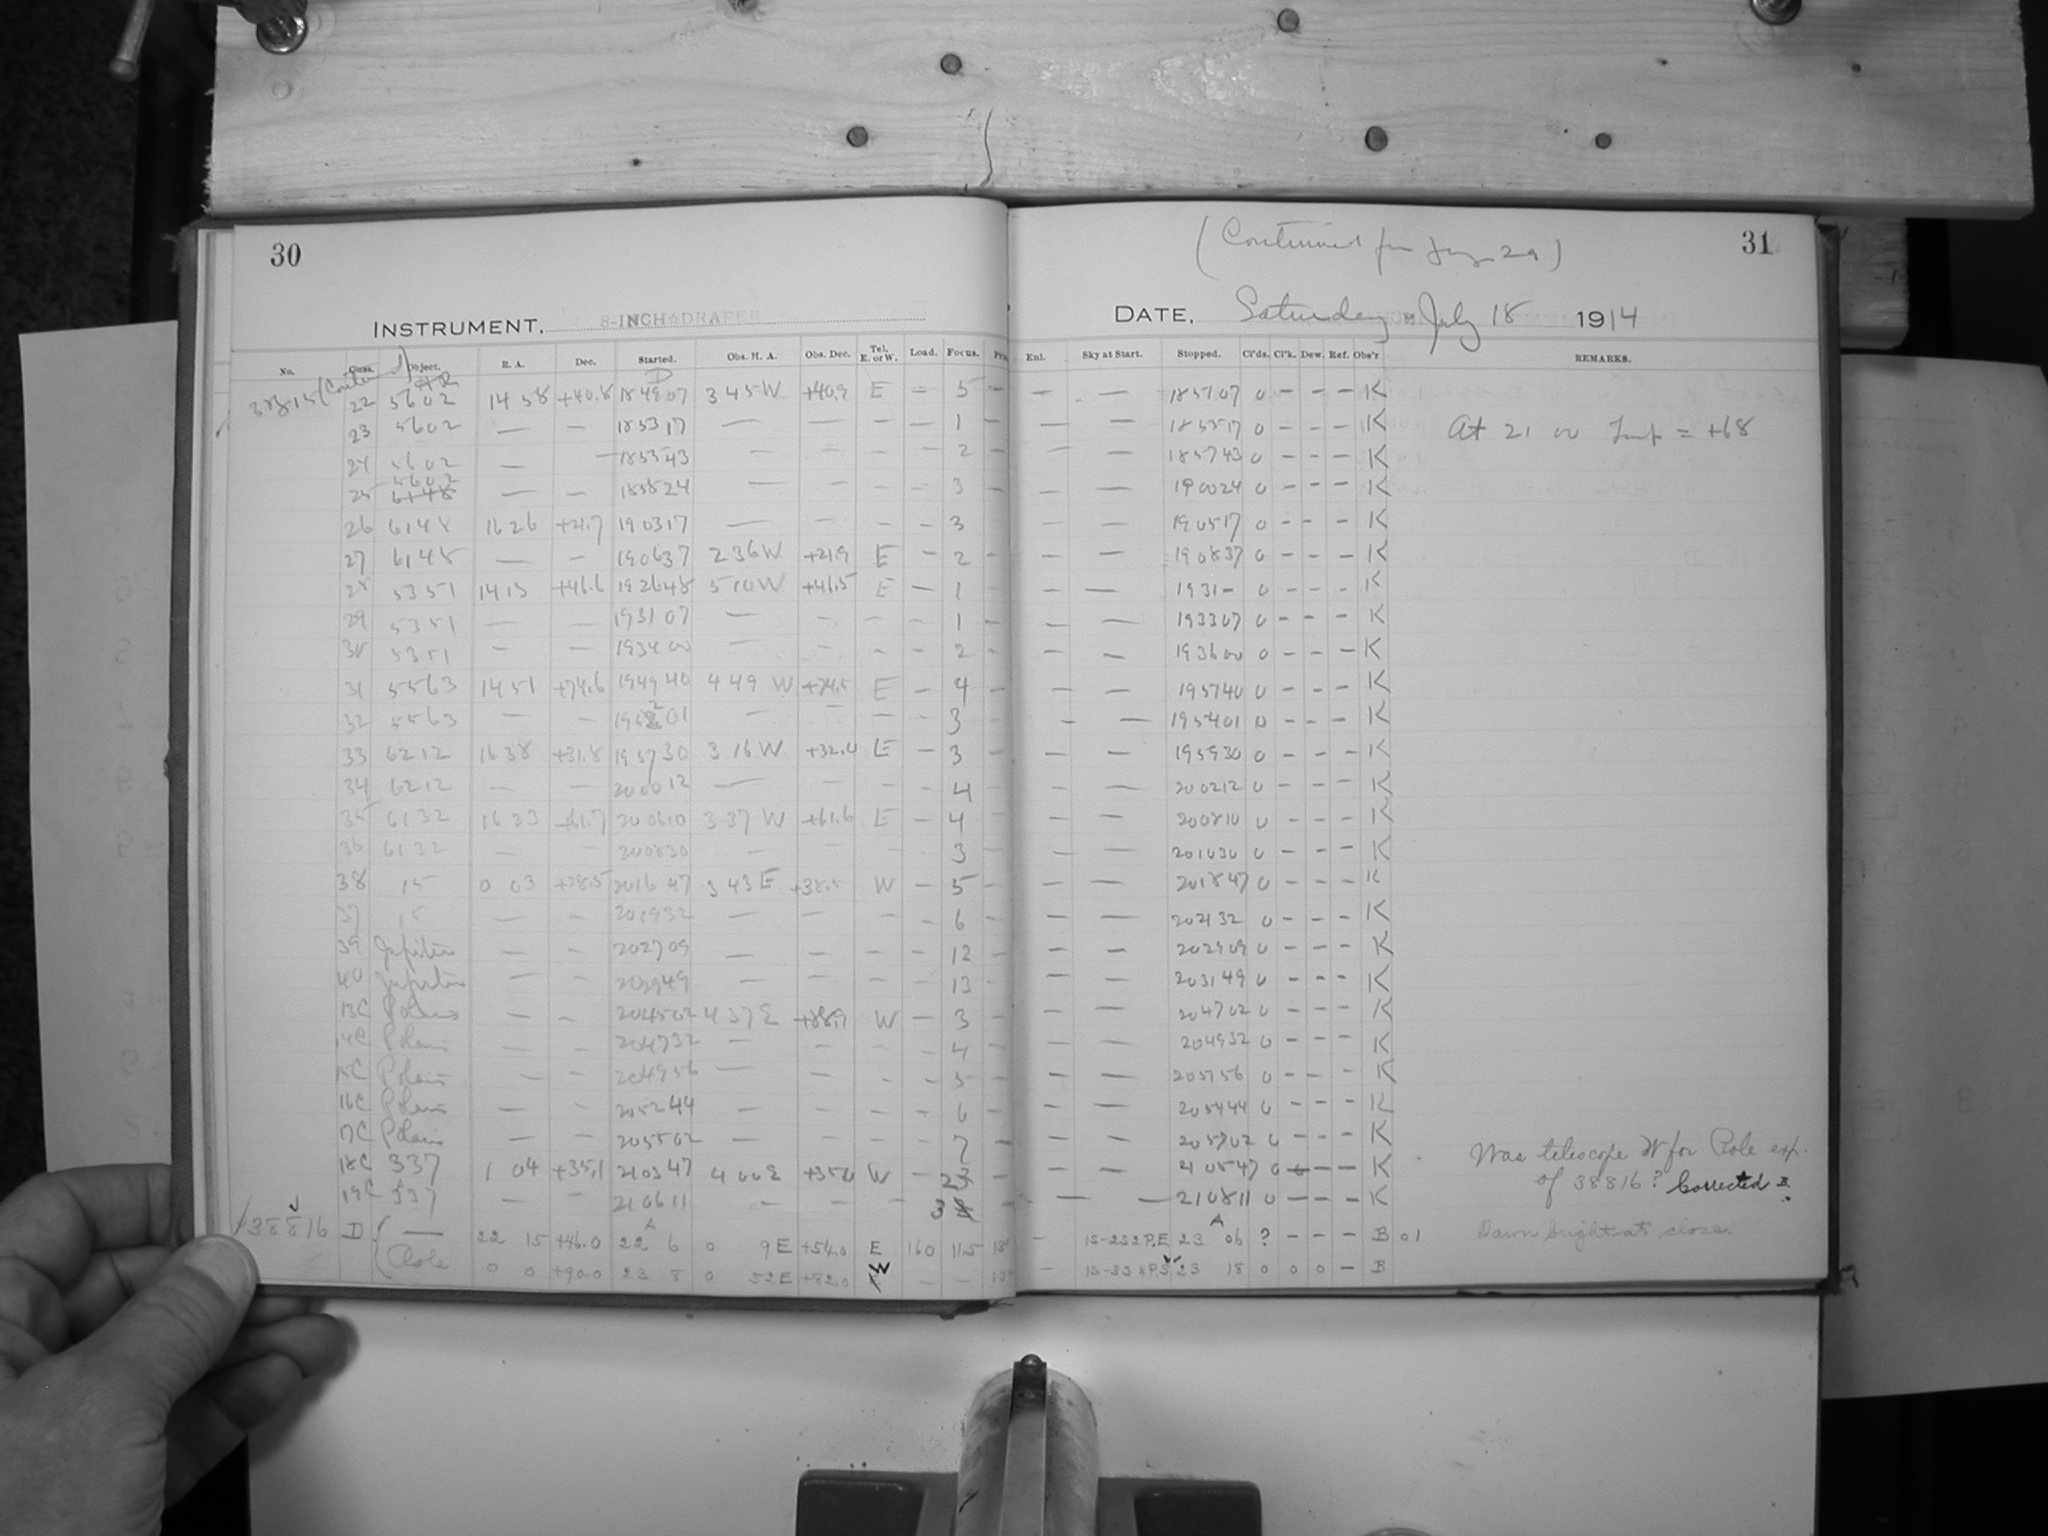 30
INSTRUMENT. 8-INCH DRAPER
No. Class. Object. R. A. Dec. Started. Obs. H. A. Obs. Dec. Tel. E. or W. Load. Focus.
22 5602 14 58 +40.8 184907 3 45 W +40.9 E — 5 —
23 5602 — — 185317 — — — — 1 —
24 5602 — — 185543 — — — — 2 —
25 5602 — — 185824 — — — — 3 —
26 6148 16 26 +21.7 190317 — — — — 3
27 6148 — — 190637 2 36 W +21.9 E — 2 —
28 5351 14 13 +46.6 192648 5 10 W +46.5 E — 1 —
29 5351 — — 193107 — — — — 1 —
30 5351 — — 193400 — — — — 2 —
31 5563 14 51 +74.6 194940 4 49 W +74.5 E — 4 —
32 5563 — — 195201 — — — — 3 —
33 6212 16 38 +31.8 195730 3 16 W +32.0 E — 3 —
34 6212 — — 200012 — — — — 4
35 6132 16 23 +61.7 200610 3 37 W +61.6 E — 4 —
36 6132 — — 200830 — — — — 3
38 15 0 03 +28.5 201647 3 43 E W — 5 —
37 15 — — 201932 — — — — 6 —
39 Jupiter — — 202709 — — — — 12 —
40 Jupiter — — 202949 — — — — 13 —
13C Polaris — — 204502 4 37 E +88.9 W — 3 —
14C Polaris — — 204732 — — — — 4 —
15C Polaris — — 204956 — — — — 5 —
16C Polaris — — 205244 — — — — 6 —
17C Polaris — — 205502 — — — — 7 —
18C 337 1 04 +35.1 210347 4 00 E +35.0 W — 2 —
19C 337 — — 210611 — — — — 3 —
38816 D { — 22 15 +46.0 22 6 0 9 E +54.0 E 160 11.5
Pole 0 0 +90.0 23 8 0 52 E +82.0 W — —
31
DATE, Saturday July 18 1914
Enl. Sky at Start. Stopped. Cl'ds. Cl'k. Dew. Ref. Obs'r REMARKS.
— — 185107 0 — — — K
— — 185517 0 — — — K At 21 00 Temp = +68
— — 185743 0 — — — K
— — 190024 0 — — — K
— — 190517 0 — — K
— — 190837 0 — — — K
— — 1931— 0 — — — K
— — 193307 0 — — — K
— — 193600 0 — — — K
— — 195140 0 — — — K
— — 195401 0 — — — K
— — 195930 0 — — — K
— — 200212 0 — — — K
— — 200810 0 — — — K
— — 201030 0 — — — K
— — 201847 0 — — — K
— — 202132 0 — — — K
— — 202909 0 — — — K
— — 203149 0 — — — K
— — 204702 0 — — — K
— — 204932 0 — — — K
— — 205156 0 — — — K
— — 205444 0 — — — K
— — 205702 0 — — — K
— — 210547 0 — — — K Was telescope W for Pole exp.
— — 210811 0 — — — K of 38816? Corrected B.
— 1S-2S2P.E 23 06 ? — — — B 01 Dawn bright at close.
— 23 18 0 0 0 — B